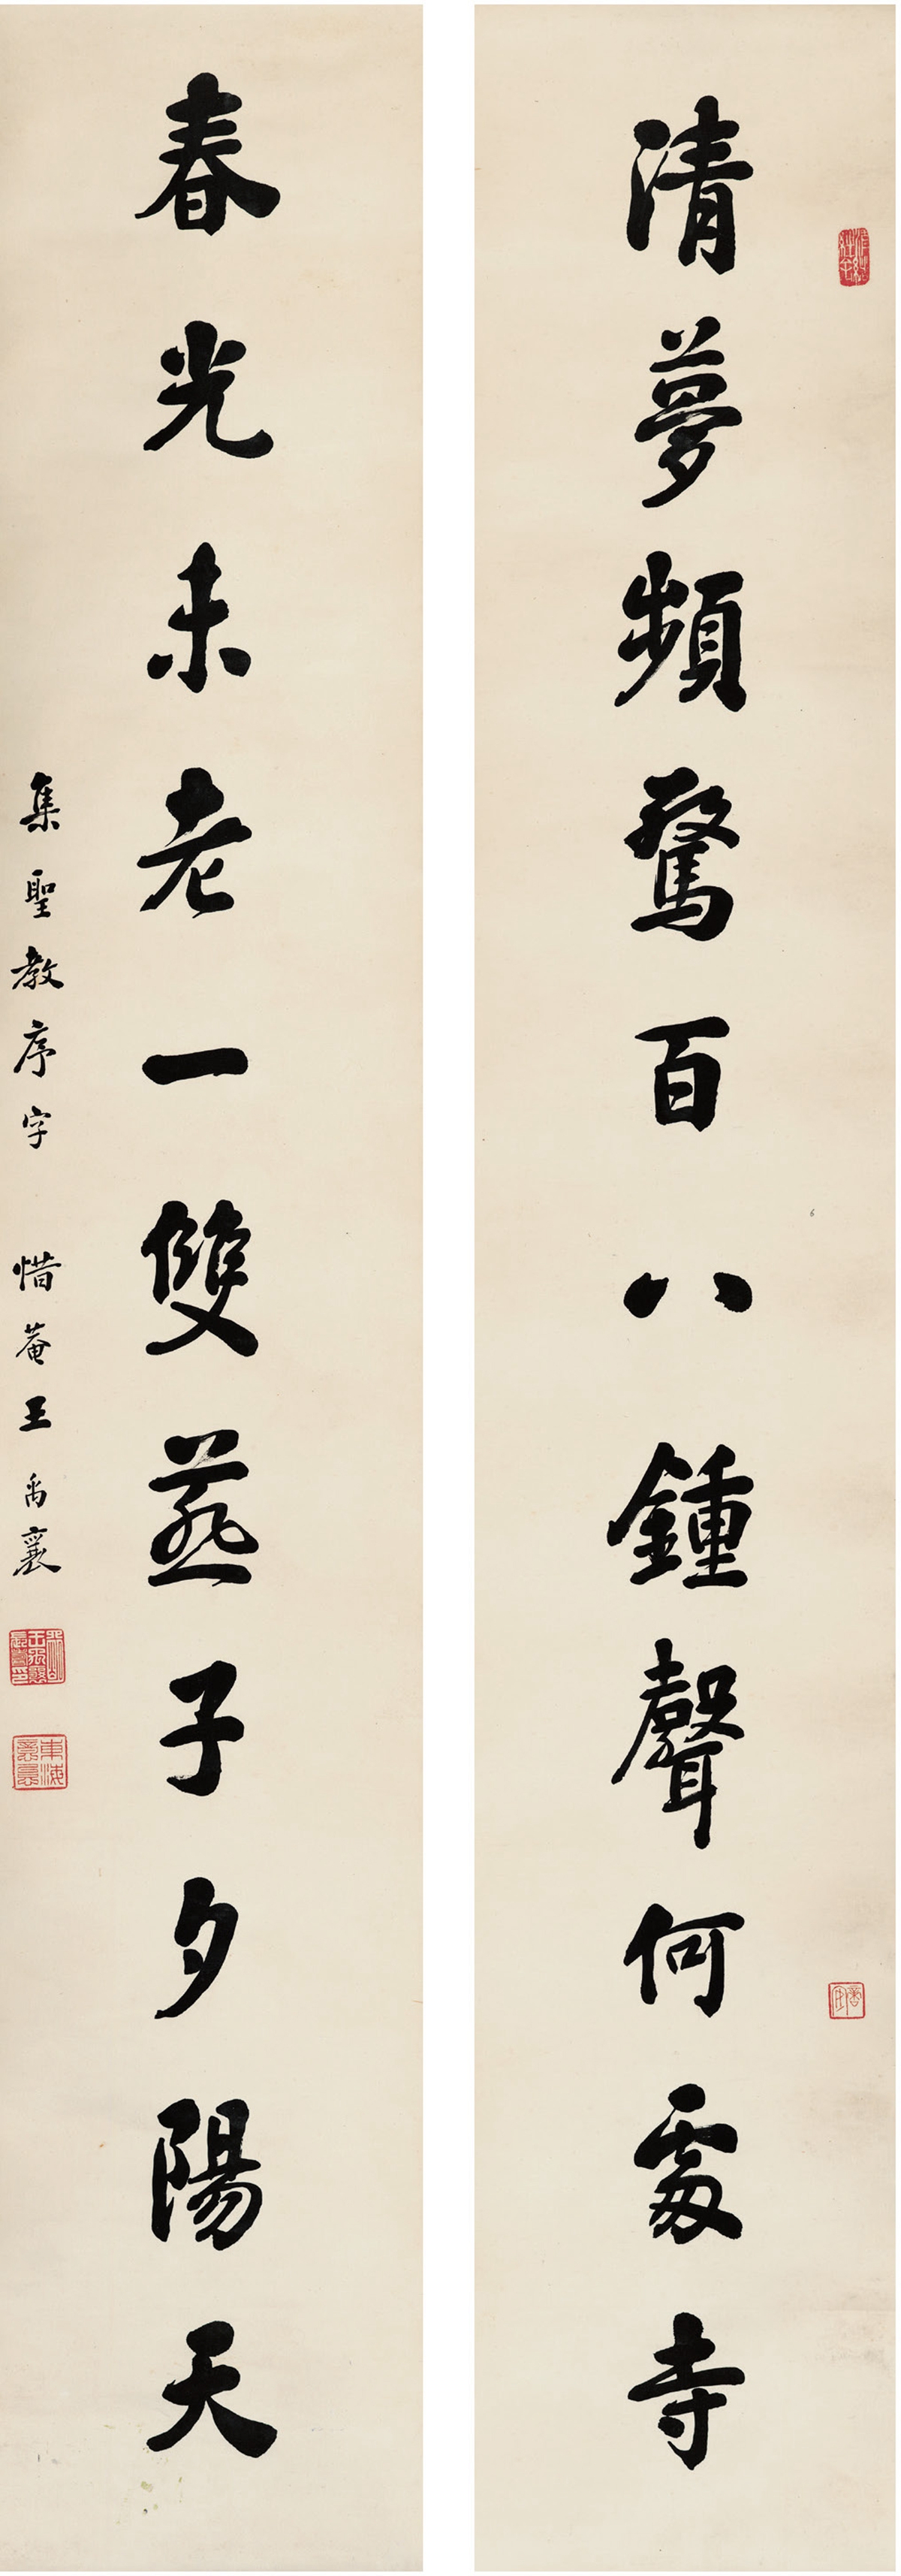 清夢頻驚百八鍾聲何處寺
春光未老一雙燕子夕陽天
集聖教序字 惜菴王禹襄